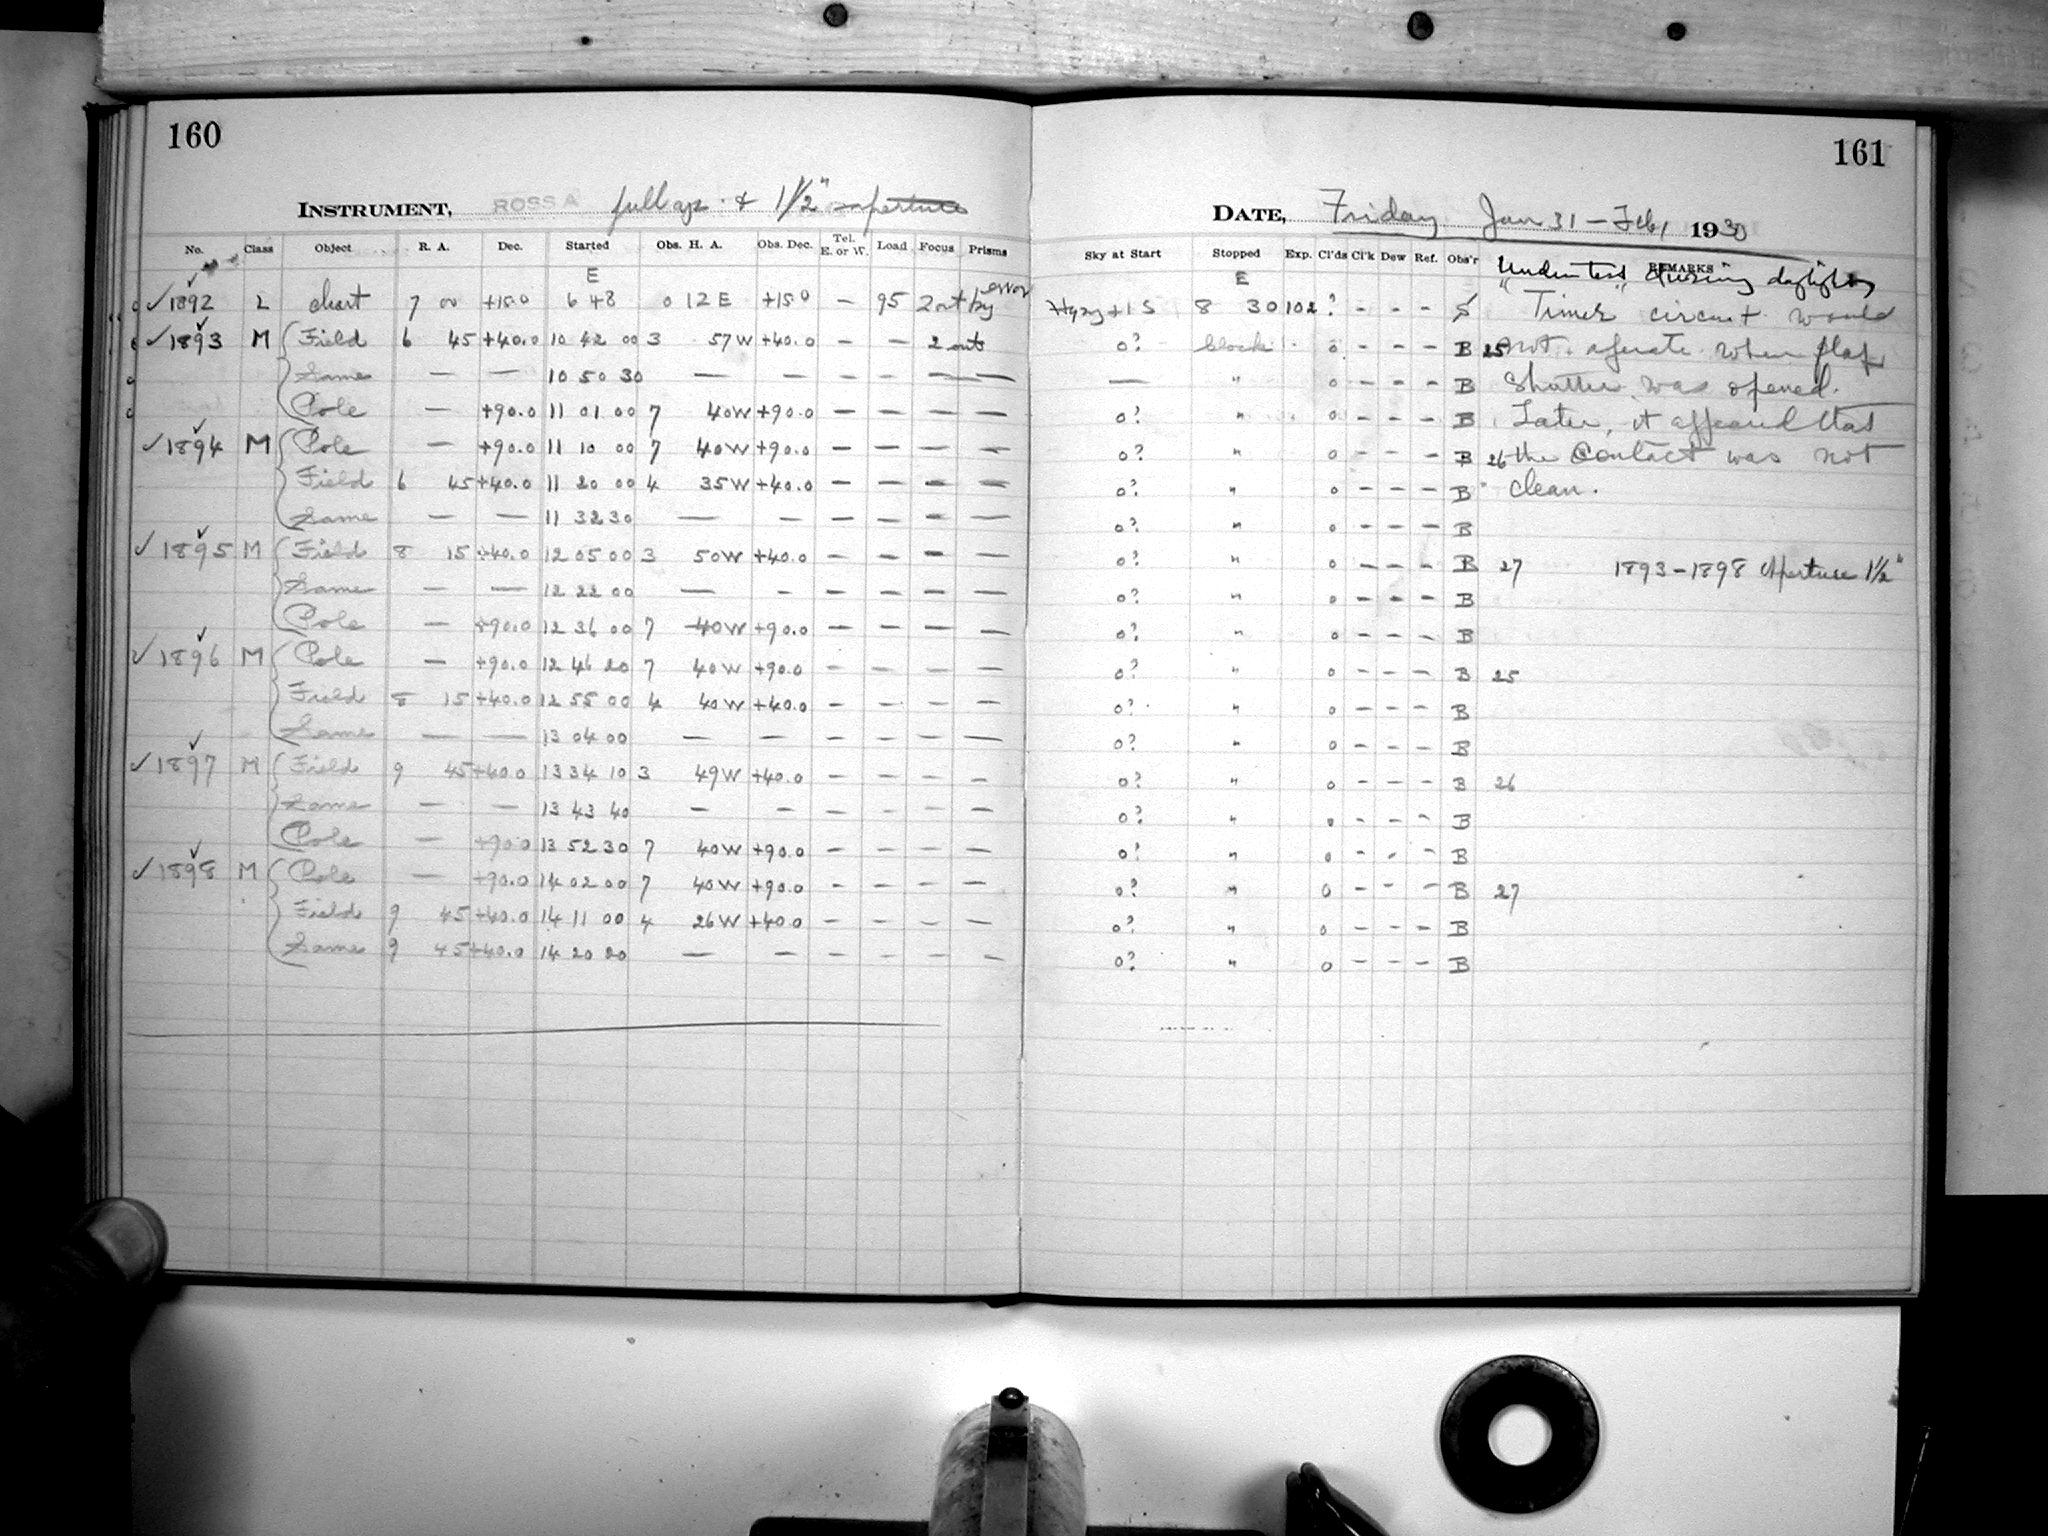 160
INSTRUMENT, ROSS A full ap. & 1 1/2" aperture
No. Class Object R. A. Dec. Started Obs. H. A. Obs. Dec. Tel. E. or W. Load Focus Prisms
E
✓1892 L chart 7 00 +15.0 6 48 0 12 E +15.0 — 95 2 out by error
✓1893 M Field 6 45 +40.0 10 42 00 3 57 W +40.0 — — 2 out
Same — — 10 50 30 — — — — — —
Pole — +90.0 11 01 00 7 40 W +90.0 — — — —
✓1894 M Pole — +90.0 11 10 00 7 40 W +90.0 — — — —
Field 6 45 +40.0 11 20 00 4 35 W +40.0 — — — —
Same — — 11 32 30 — — — — — —
✓1895 M Field 8 15 +40.0 12 05 00 3 50 W +40.0 — — — —
Same — — 12 22 00 — — — — — —
Pole — +90.0 12 36 00 7 40 W +90.0 — — — —
✓1896 M Pole — +90.0 12 46 20 7 40 W +90.0 — — — —
Field 8 15 +40.0 12 55 00 4 40 W +40.0 — — — —
Same — — 13 04 00 — — — — — —
✓1897 M Field 9 45 +40.0 13 34 10 3 49 W +40.0 — — — —
Same — — 13 43 40 — — — — — —
Pole — +90.0 13 52 30 7 40 W +90.0 — — — —
✓1898 M Pole — +90.0 14 02 00 7 40 W +90.0 — — — —
Field 9 45 +40.0 14 11 00 4 26 W +40.0 — — — —
Same 9 45 +40.0 14 20 20 — — — — — —
161
DATE, Friday Jan 31 – Feb 1 1930
Sky at Start Stopped Exp. Cl'ds Cl'k Dew Ref. Obs'r REMARKS
E "Under test" during daylight
Hazy + 1 S 8 30 102 ? - - - Timer circuit would
0? block 0 - - - B 25 not operate when flap
— " 0 - - - B shutter was opened.
0? " 0 - - - B Later, it appeared that
0? " 0 - - - B 26 the contact was not
0? " 0 - - - B clean.
0? " 0 - - - B
0? " 0 - - - B 27 1893–1898 Aperture 1 1/2"
0? " 0 - - - B
0? " 0 - - - B
0? " 0 - - - B 25
0? " 0 - - - B
0? " 0 - - - B
0? " 0 - - - B 26
0? " 0 - - - B
0? " 0 - - - B
0? " 0 - - - B 27
0? " 0 - - - B
0? " 0 - - - B